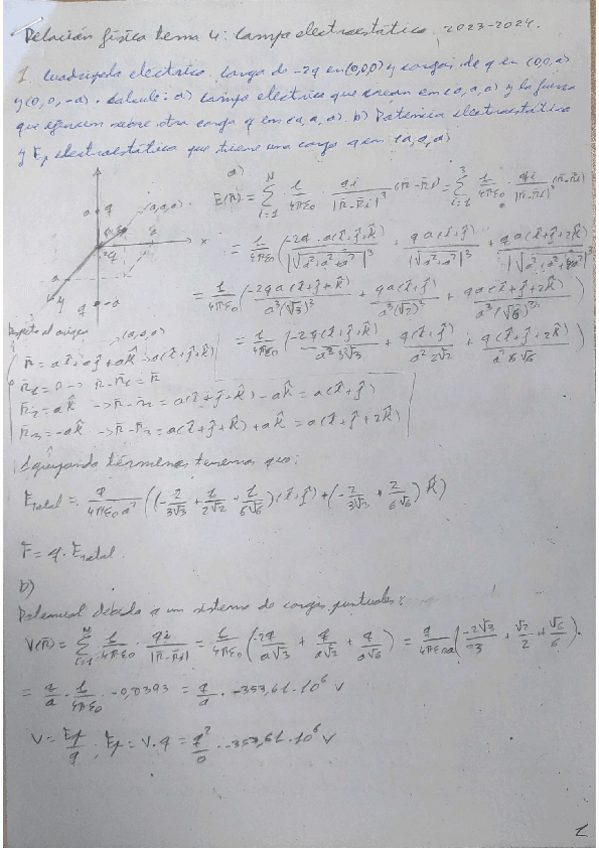 Relación física tema 4: Campo electrostático. 2023-2024.
1. Cuadripolo eléctrico. Carga de -2q en (0,0,0) y cargas de q en (0,0,a)
y (0, 0, -a). Calcule: a) Campo eléctrico que crean en (a, a, a) y la fuerza
que ejercen sobre otra carga q en (a, a, a). b) Potencia electrostática
y Ep electrostática que tiene una carga q en (a, a, a)
a)
E(r̄) = Σ_{i=1}^{N} 1/4πε0 · qi/|r̄-r̄i|³ (r̄-r̄i) = Σ_{i=1}^{3} 1/4πε0 · qi/|r̄-r̄i|³ (r̄-r̄i)
= 1/4πε0 (-2q·a(î+ĵ+k̂)/|√a²+a²+a²|³ + qa(î+ĵ)/|√a²+a²|³ + qa(î+ĵ+2k̂)/|√a²+a²+(2a)²|³)
= 1/4πε0 (-2qa(î+ĵ+k̂)/a³(√3)³ + qa(î+ĵ)/a³(√2)³ + qa(î+ĵ+2k̂)/a³(√6)³)
= 1/4πε0 (-2q(î+ĵ+k̂)/a²3√3 + q(î+ĵ)/a²2√2 + q(î+ĵ+2k̂)/a²6√6)
a q (a,a,a)
-2q a x
y -a
Respecto al origen (a,a,a)
r̄ = aî+aĵ+ak̂ = a(î+ĵ+k̂)
r̄1 = 0 → r̄-r̄1 = r̄
r̄2 = ak̂ → r̄-r̄2 = a(î+ĵ+k̂) - ak̂ = a(î+ĵ)
r̄3 = -ak̂ → r̄-r̄3 = a(î+ĵ+k̂) + ak̂ = a(î+ĵ+2k̂)
Agrupando términos tenemos que:
Etotal = q/4πε0a² ((-2/3√3 + 1/2√2 + 1/6√6)(î+ĵ) + (-2/3√3 + 2/6√6) k̂)
F̄ = q·Ētotal.
b)
Potencial debido a un sistema de cargas puntuales:
V(r̄) = Σ_{i=1}^{N} 1/4πε0 · qi/|r̄-r̄i| = 1/4πε0 (-2q/a√3 + q/a√2 + q/a√6) = q/4πε0a (-2√3/3 + √2/2 + √6/6).
= q/a · 1/4πε0 · -0,0393 = q/a · -353,61·10⁶ V
V = Ep/q ; Ep = V·q = q²/a · -353,61·10⁶ V
1